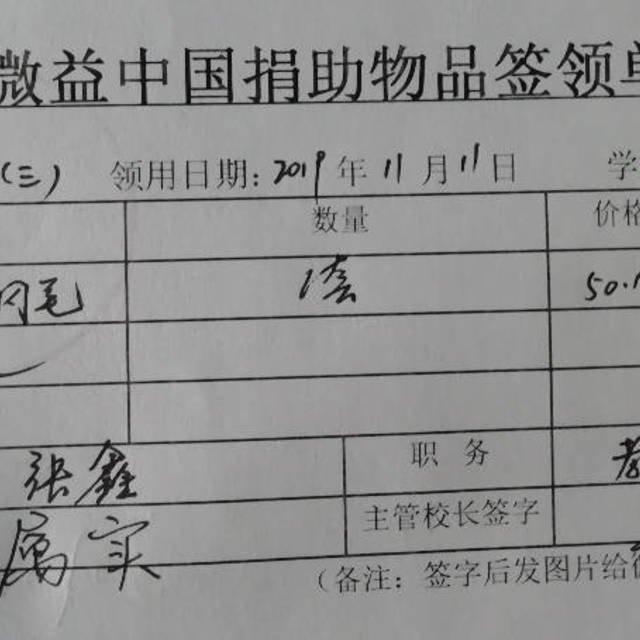 微益中国捐助物品签领单
(三) 领用日期: 2019 年 11 月 11 日 学
数量 价格
1套 50.
张鑫 职 务
属实 主管校长签字
(备注: 签字后发图片给